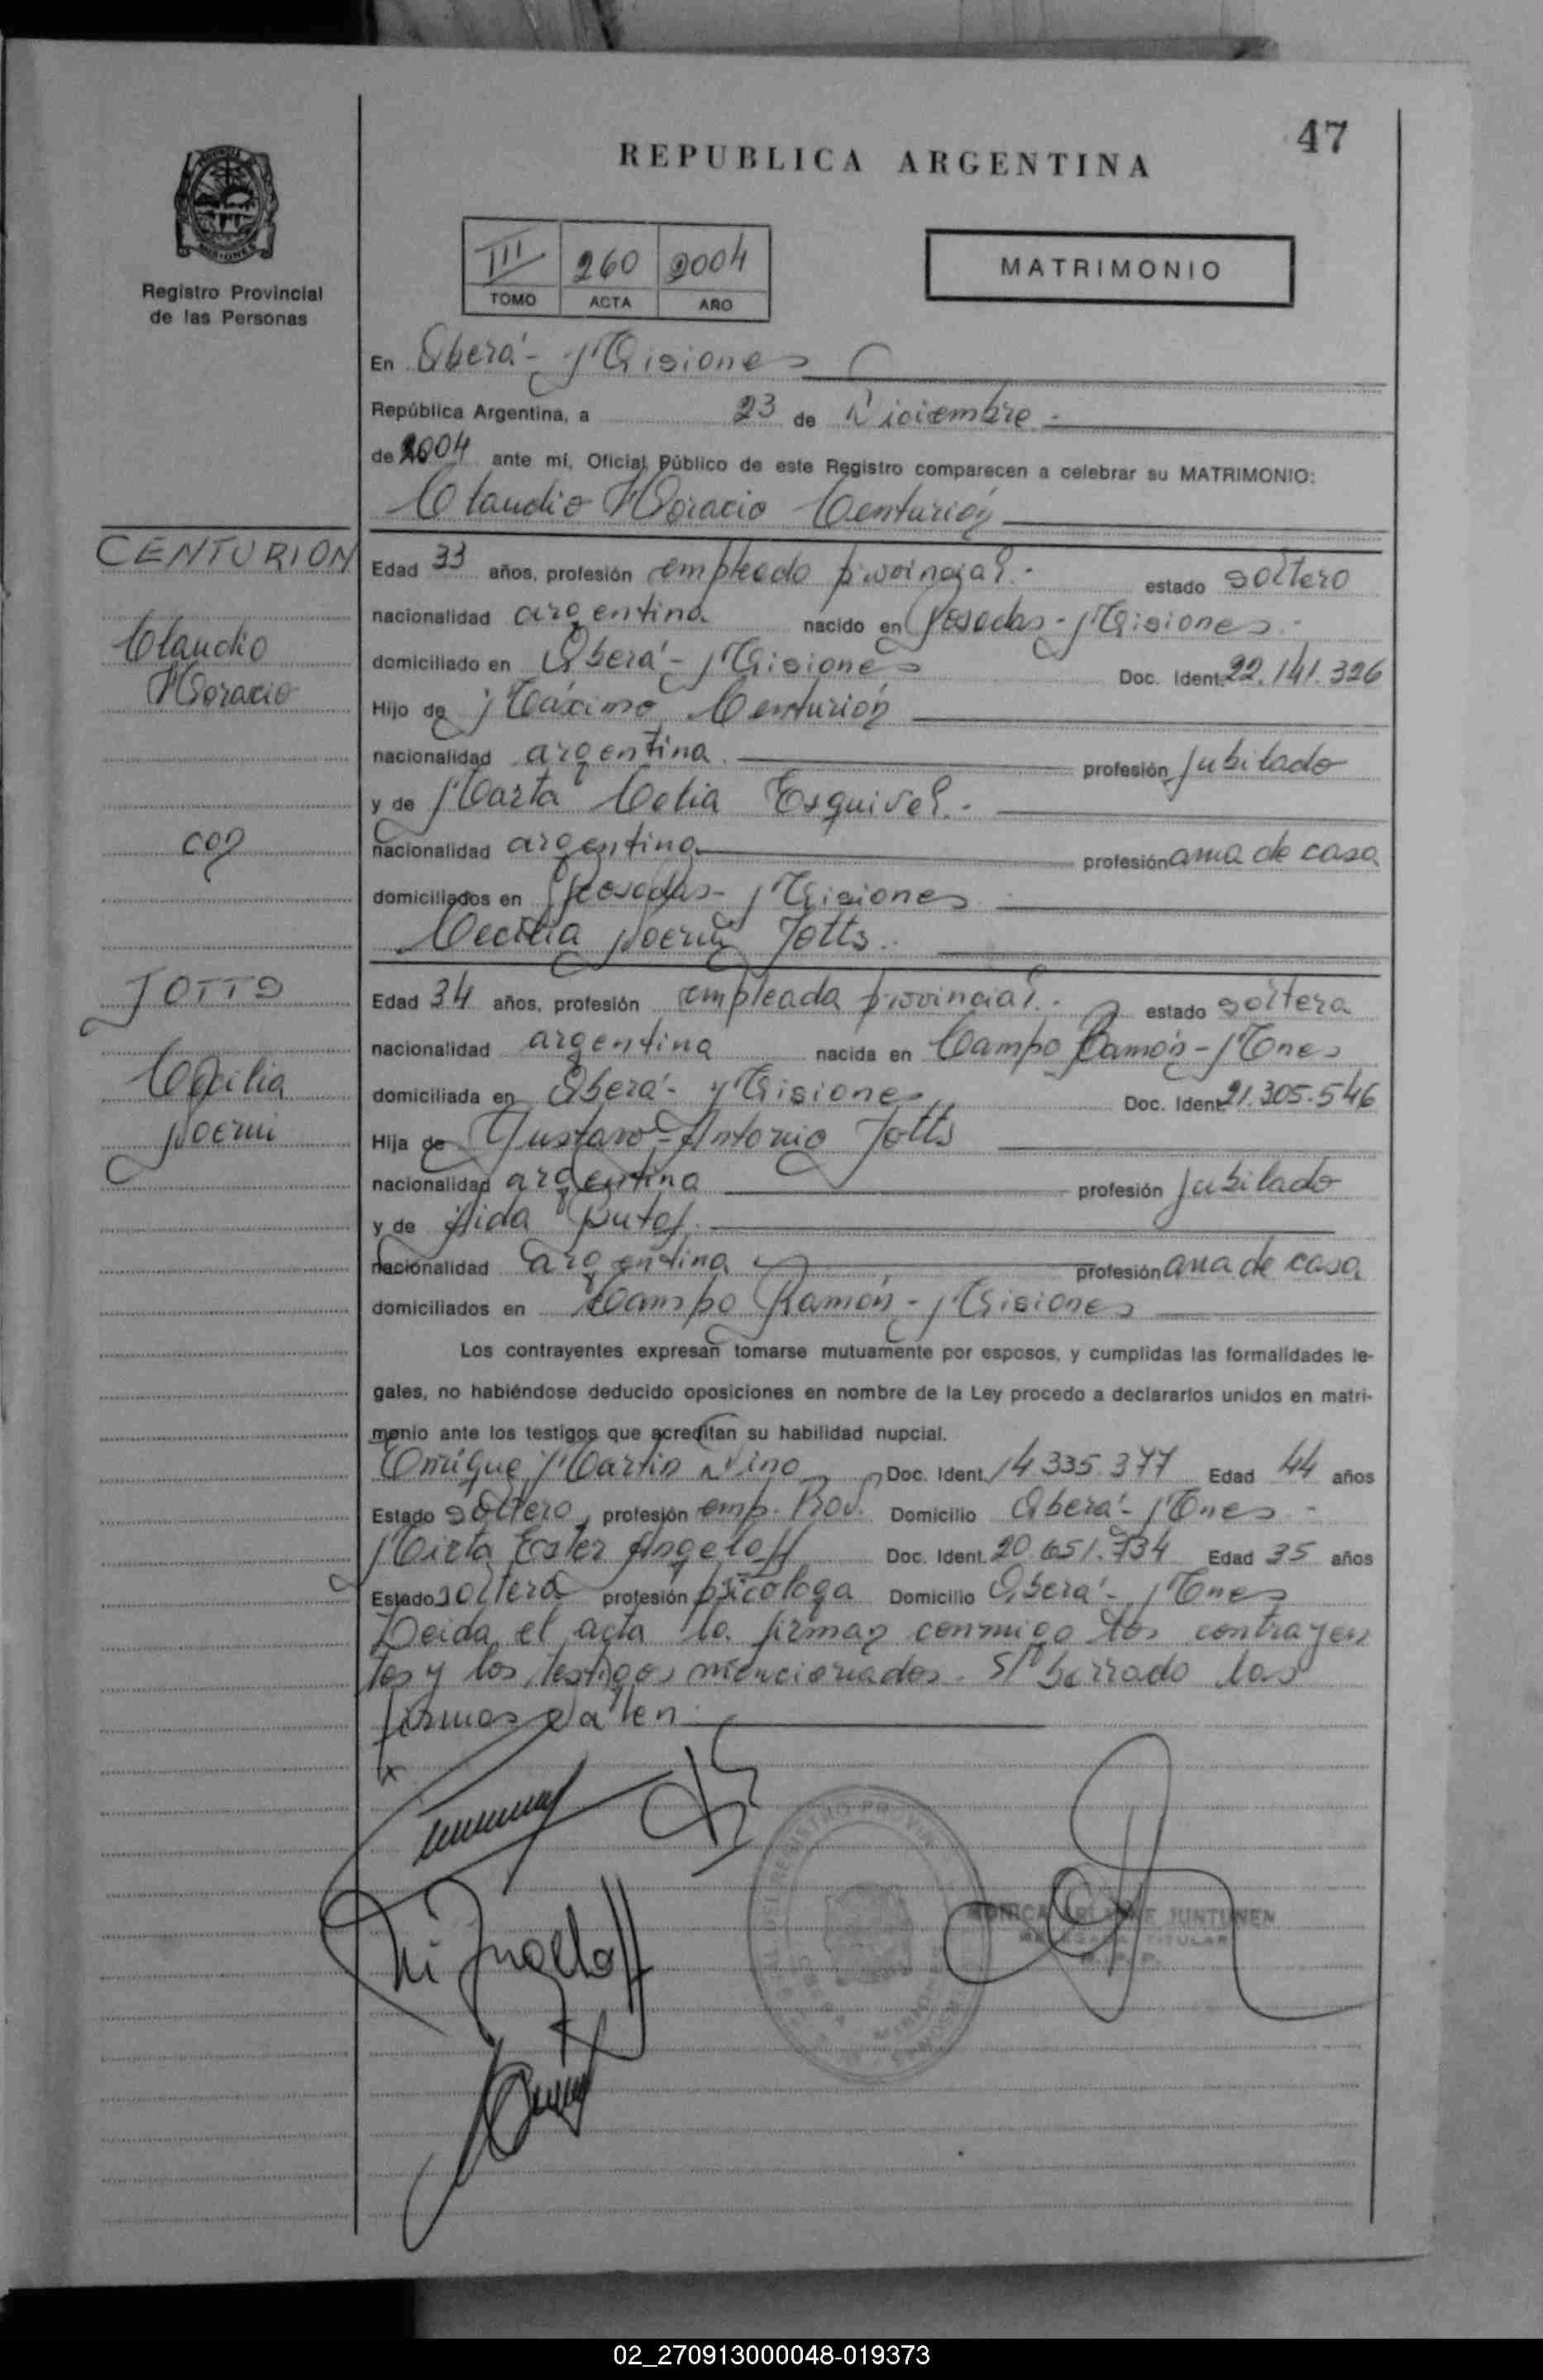 47
REPUBLICA ARGENTINA
III 260 2004
TOMO ACTA AÑO
MATRIMONIO
Registro Provincial
de las Personas
En Oberá - Misiones
República Argentina, a 23 de Diciembre.-
de 2004 ante mí, Oficial Público de este Registro comparecen a celebrar su MATRIMONIO:
Claudio Horacio Centurión
CENTURION
Claudio
Horacio
con
JOTTO
Cecilia
Noemi
Edad 33 años, profesión empleado provincial.- estado soltero
nacionalidad argentina nacido en Posadas - Misiones.-
domiciliado en Oberá - Misiones Doc. Ident. 22.141.326
Hijo de Máximo Centurión
nacionalidad argentina. profesión Jubilado
y de Marta Celia Esquivel.-
nacionalidad argentina. profesión ama de casa.
domiciliados en Posadas - Misiones
Cecilia Noemi Jotto.
Edad 34 años, profesión empleada provincial.- estado soltera
nacionalidad argentina nacida en Campo Ramón - Mnes
domiciliada en Oberá - Misiones Doc. Ident. 21.305.546
Hija de Gustavo Antonio Jotto
nacionalidad argentina profesión Jubilado
y de Aida
nacionalidad argentina profesión ama de casa.
domiciliados en Campo Ramón - Misiones
Los contrayentes expresan tomarse mutuamente por esposos, y cumplidas las formalidades le-
gales, no habiéndose deducido oposiciones en nombre de la Ley procedo a declararlos unidos en matri-
monio ante los testigos que acreditan su habilidad nupcial.
Enrique Martin Doc. Ident. 14.335.377 Edad 44 años
Estado soltero, profesión emp. Prov. Domicilio Oberá - Mnes.-
Mirta Ester Angeloff Doc. Ident. 20.651.734 Edad 35 años
Estado soltera profesión psicóloga Domicilio Oberá - Mnes
Leida el acta la firman conmigo los contrayen
tes y los testigos mencionados. S/ borrado los
firmas valen.
Angeloff
JUNTUNEN
TITULAR
02_270913000048-019373